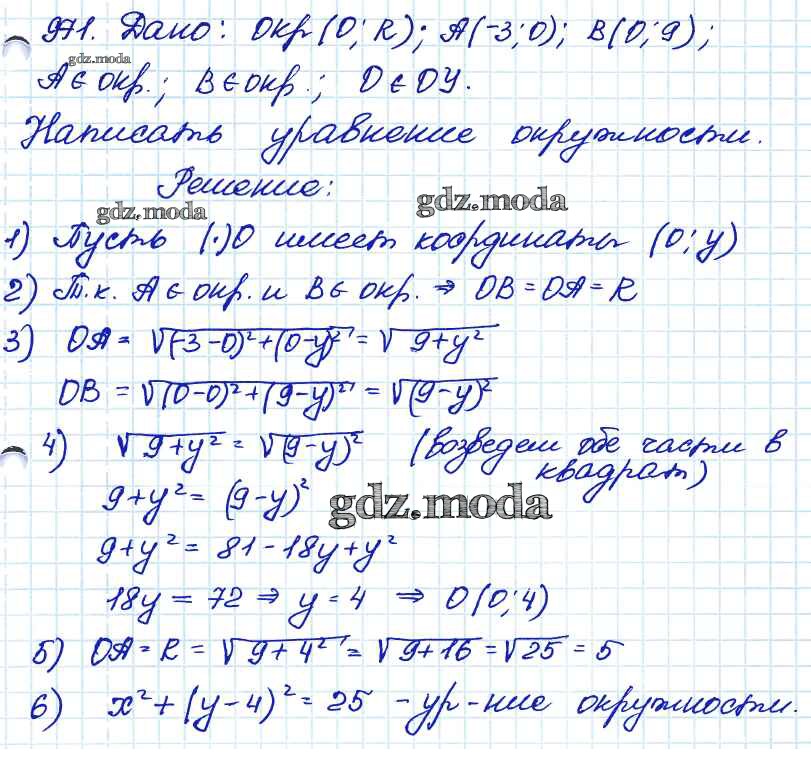 971. Дано: Окр(O; R); A(-3; 0); B(0; 9);
gdz.moda
A ∈ окр.; B ∈ окр.; O ∈ OY.
Написать уравнение окружности.
Решение:
gdz.moda gdz.moda
1) Пусть (·)O имеет координаты (0; y)
2) Т.к. A ∈ окр. и B ∈ окр. ⇒ OB = OA = R
3) OA = √((-3-0)²+(0-y)²) = √(9+y²)
OB = √((0-0)²+(9-y)²) = √((9-y)²)
4) √(9+y²) = √((9-y)²) (возведем обе части в
квадрат)
9+y² = (9-y)²
gdz.moda
9+y² = 81-18y+y²
18y = 72 ⇒ y = 4 ⇒ O(0; 4)
5) OA = R = √(9+4²) = √(9+16) = √25 = 5
6) x²+(y-4)² = 25 - ур-ние окружности.